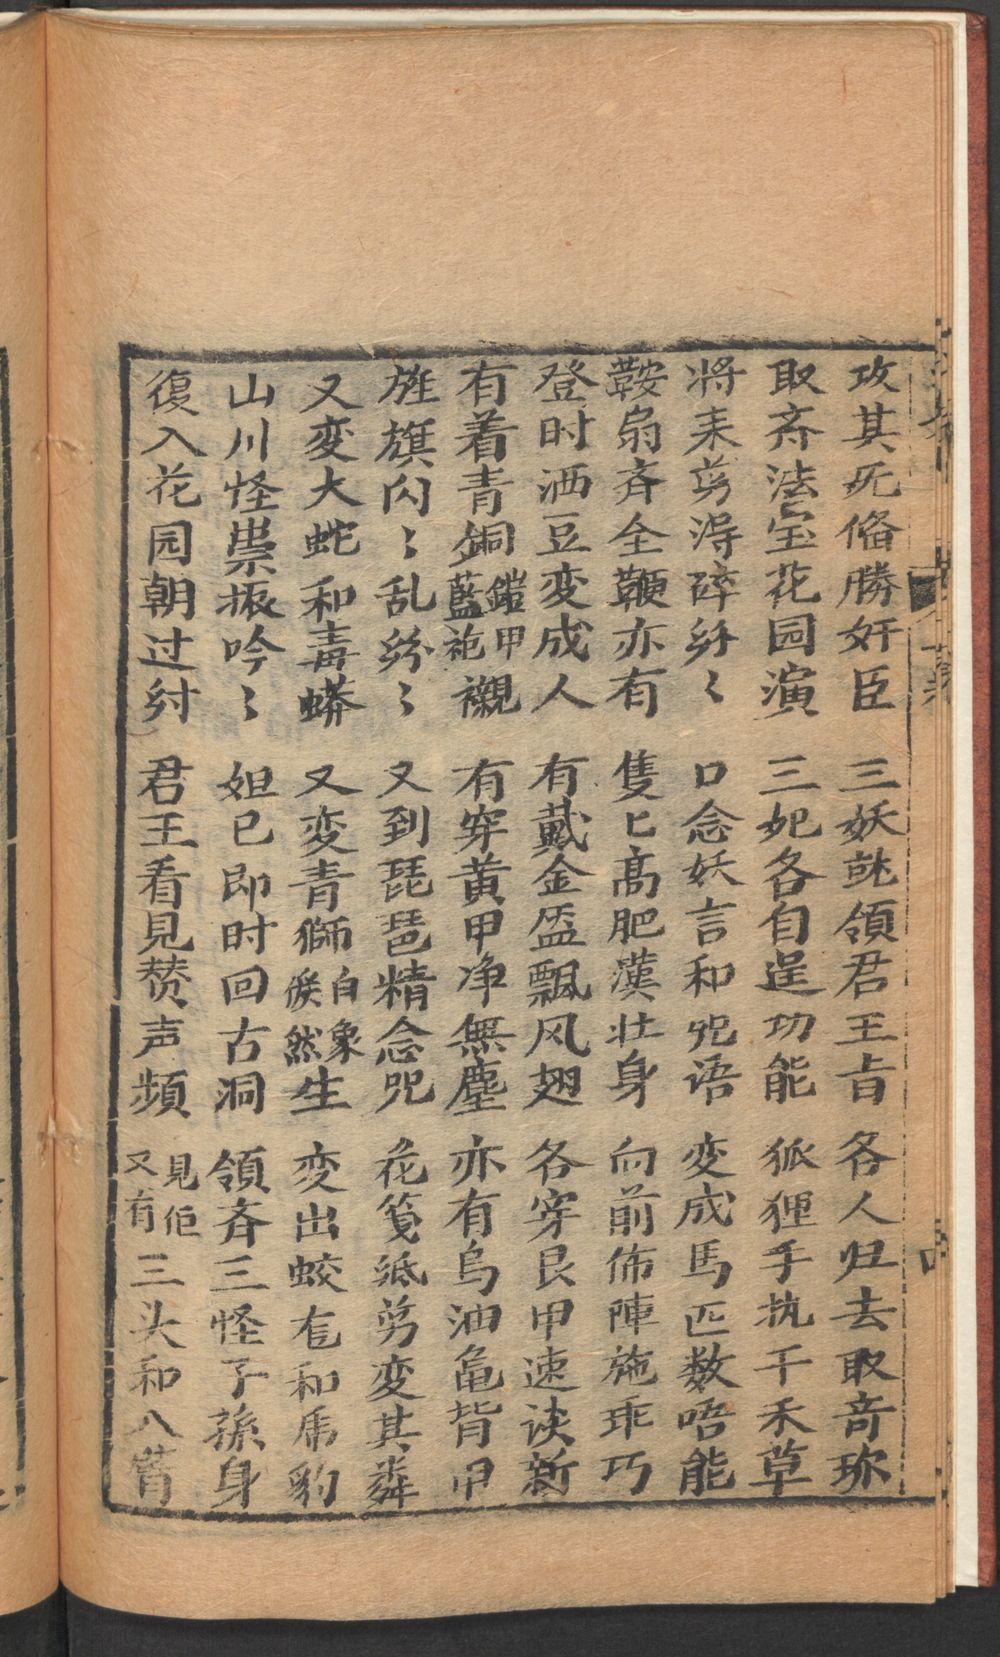 攻其旡偹勝奸臣　三妖詭領君王旨　各人归去取奇珎
取斉法宝花园演　三妃各自逞功能　狐狸手执干禾草
将来剪淂碎紛〻　口念妖言和咒语　变成馬匹数唔能
鞍扇斉全鞭亦有　隻匕髙肥漢壮身　向前佈陣施乖巧
登时洒豆变成人　有戴金盔飄风翅　各穿艮甲速谈新
有着青銅鎧甲藍袍襯　有穿黄甲净無塵　亦有烏油亀背甲
旌旗闪〻乱紛〻　又到琵琶精念咒　花笺纸剪变其粦
又变大蛇和毒蟒　又变青獅白象倐然生　变出蛟尨和乕豹
山川怪祟振吟〻　妲己即时回古洞　領斉三怪子孫身
復入花园朝过紂　君王看見赞声頻　見佢又有三头和八背